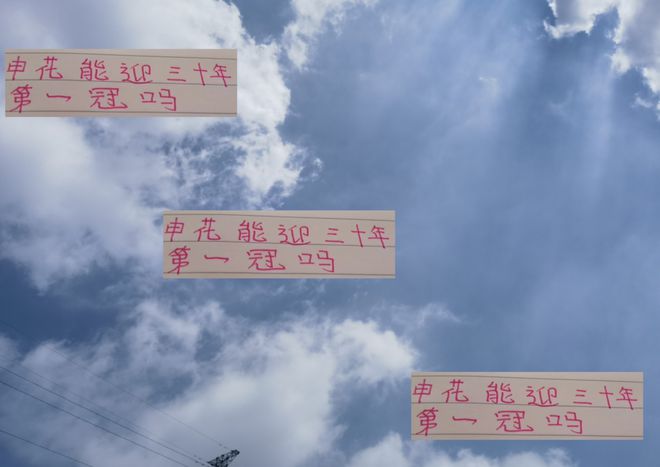 申花能迎三十年
第一冠吗
申花能迎三十年
第一冠吗
申花能迎三十年
第一冠吗